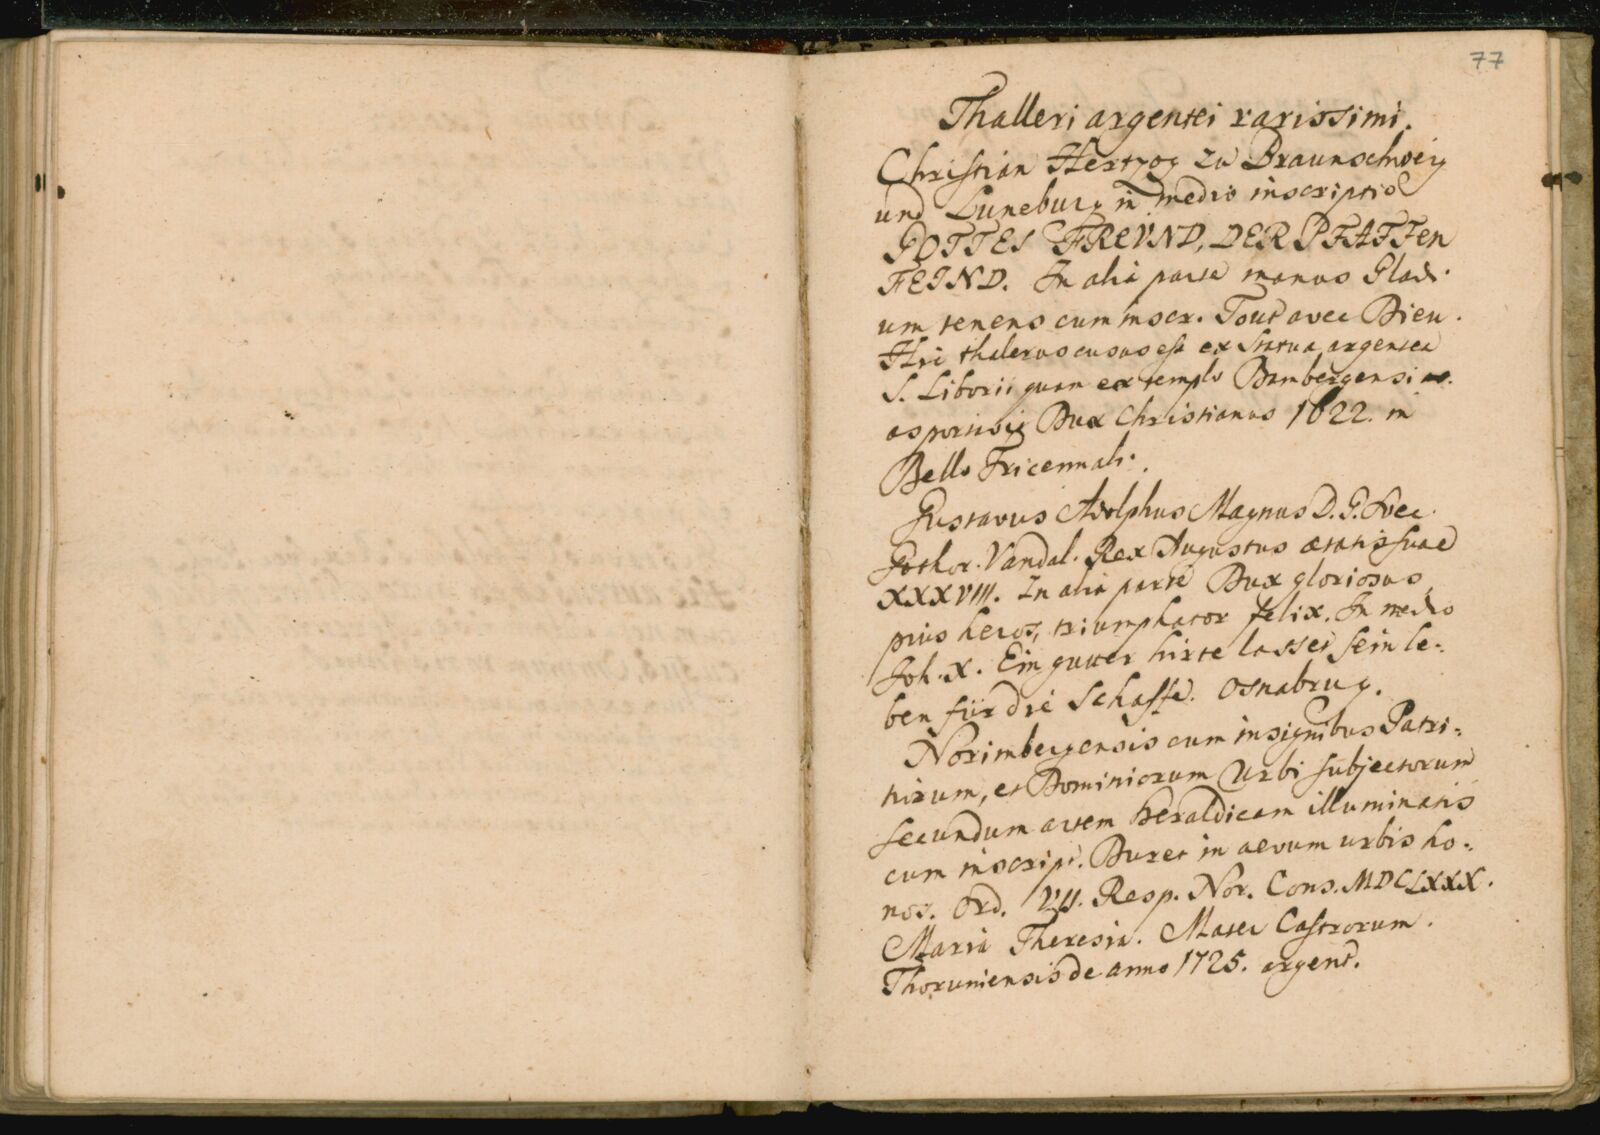 77
Thalleri argentei rarissimi.
Christian Hertzog zu Braunschweig
und Luneburg in medio inscriptio
GOTTES FREVND, DER PFAFFen
FEIND. In alia parte manus Gladi-
um tenens cum inscr. Tout avec Dieu.
Hic thalerus cusus est ex statua argentea
S. Liborii quam ex templo Bambergensi
asportavit Dux Christianus 1622. in
Bello Tricennali.
Gustavus Adolphus Magnus D. G. Svec.
Gothor. Vandal. Rex Augustus aetatis suae
XXXVIII. In alia parte Dux gloriosus,
pius heros, triumphator felix. In medio
Joh. X. Ein gutter hirte lasset sein le-
ben für die Schaffe. Osnabrug.
Norimbergensis cum insignibus Patri-
tiorum, et Dominiorum Urbi subjectorum
secundum artem heraldicam illuminatis
cum inscript. Duret in aevum urbis ho-
nos. Ord. VII. Resp. Nor. Cons. MDCLXXX.
Maria Theresia. Mater Castrorum.
Thoruniensis de anno 1725. argent.